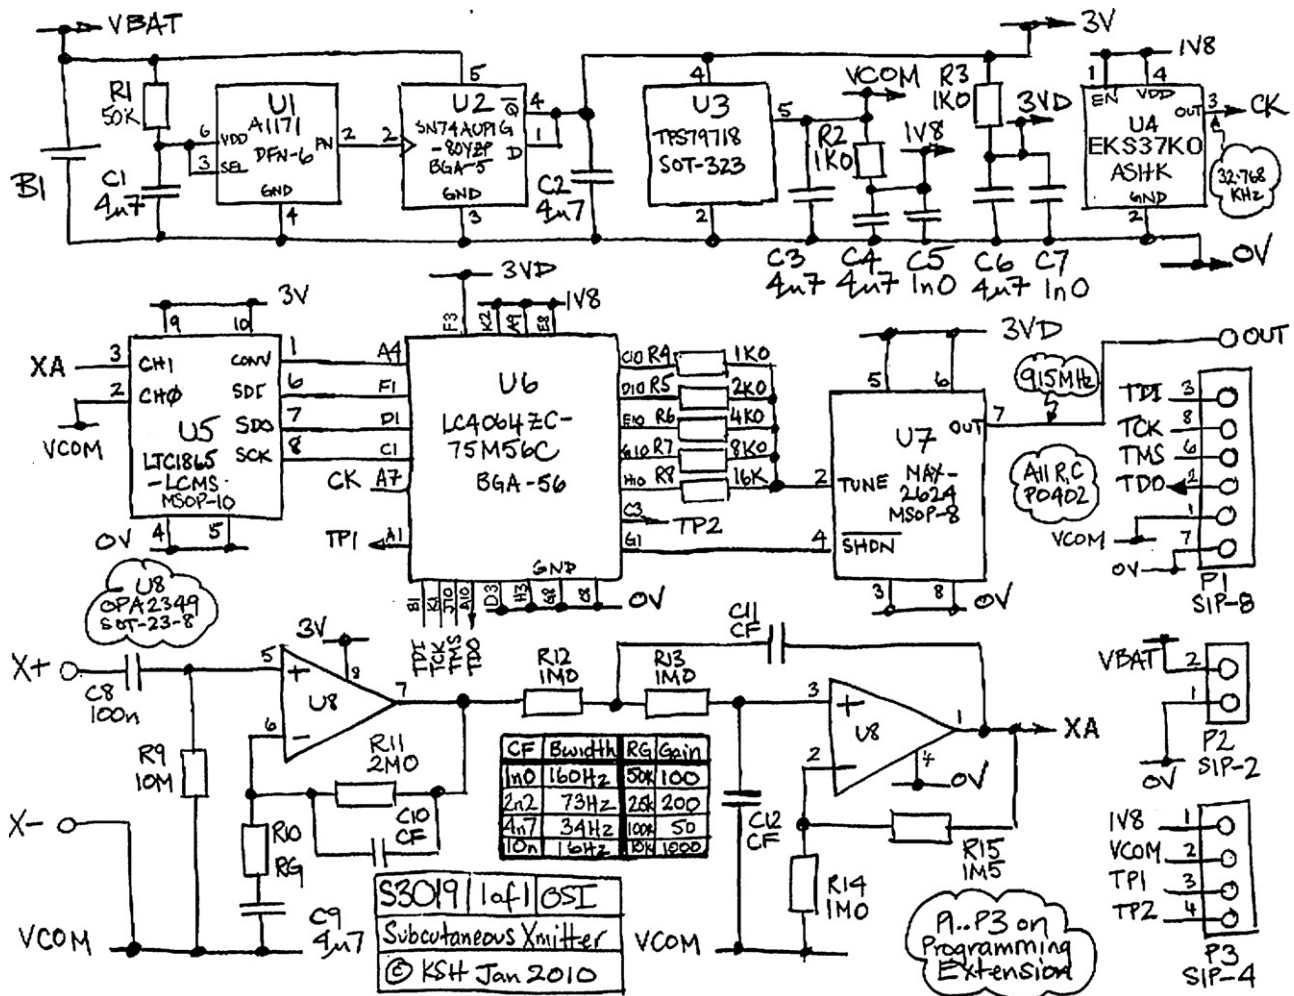 VBAT
B1
R1
50K
C1
4u7
U1
A1171
DFN-6
6
VDD
3
SEL
PN
2
GND
4
U2
SN74AUP1G
-80YZP
BGA-5
5
2
4
Q
1
D
GND
3
C2
4u7
U3
TPS79718
SOT-323
4
5
2
VCOM
R2
1K0
1V8
C3
4u7
C4
4u7
C5
1n0
3V
R3
1K0
3VD
C6
4u7
C7
1n0
1V8
1
4
EN
VDD
OUT
3
CK
U4
EKS37K0
ASHK
GND
2
32.768
KHz
0V
3V
9
10
XA
3
CH1
2
CHØ
VCOM
CONV
1
SDI
6
SDO
7
SCK
8
U5
LTC1865
-LCMS
MSOP-10
4
5
0V
3VD
F3
1V8
K2
A9
E8
A4
F1
D1
C1
CK
A7
TP1
A1
U6
LC4064ZC-
75M56C
BGA-56
C10
R4
1K0
D10
R5
2K0
E10
R6
4K0
G10
R7
8K0
H10
R8
16K
C3
TP2
G1
GND
B1
K1
J10
A10
D3
H3
G8
C8
0V
TDI
TCK
TMS
TDO
3VD
5
6
2
TUNE
4
SHDN
U7
MAX-
2624
MSOP-8
OUT
7
3
8
0V
915MHz
OUT
All R,C
P0402
TDI
3
TCK
8
TMS
6
TDO
2
VCOM
1
0V
7
P1
SIP-8
U8
OPA2349
SOT-23-8
X+
C8
100n
R9
10M
X-
VCOM
3V
5
+
8
6
-
U8
7
R11
2M0
C10
CF
R10
RG
C9
4u7
R12
1M0
R13
1M0
C11
CF
C12
CF
VCOM
3
+
2
-
U8
1
4
0V
XA
R15
1M5
R14
1M0
CF Bwidth RG Gain
1n0 160Hz 50K 100
2n2 73Hz 25K 200
4n7 34Hz 100K 50
10n 16Hz 10K 1000
S3019 1of1 OSI
Subcutaneous Xmitter
© KSH Jan 2010
P1..P3 on
Programming
Extension
VBAT
2
1
0V
P2
SIP-2
1V8
1
VCOM
2
TP1
3
TP2
4
P3
SIP-4